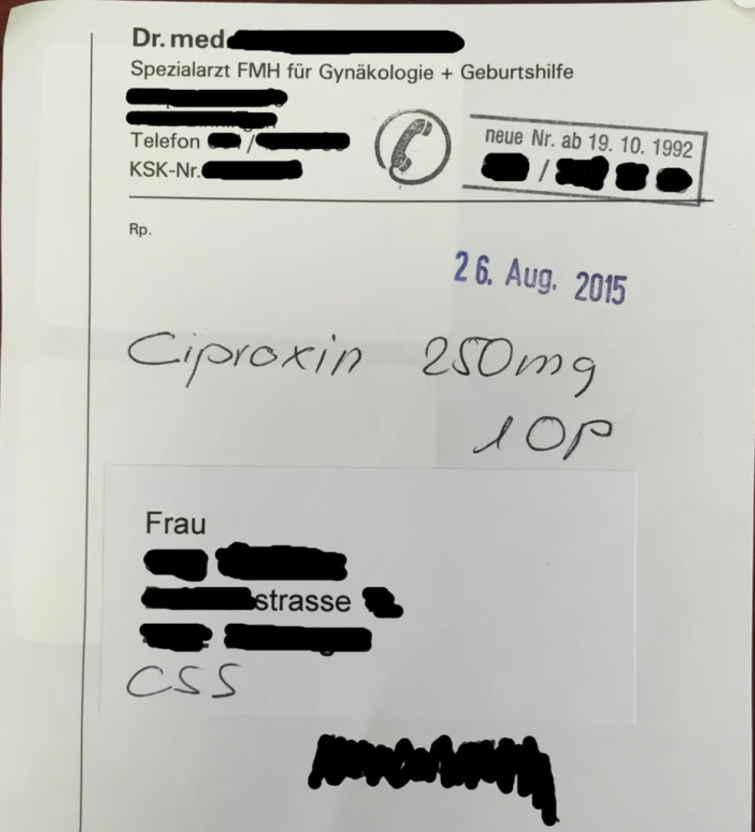 Dr. med.
Spezialarzt FMH für Gynäkologie + Geburtshilfe
Telefon /
KSK-Nr.
neue Nr. ab 19. 10. 1992
/
Rp.
26. Aug. 2015
Ciproxin 250mg
1 OP
Frau
strasse
CSS